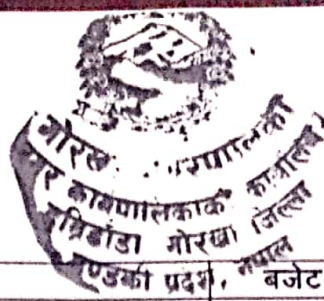 गोरखा नगरपालिका
नगर कार्यपालिकाको कार्यालय
गोरखा जिल्ला
गण्डकी प्रदेश, नेपाल
बजेट